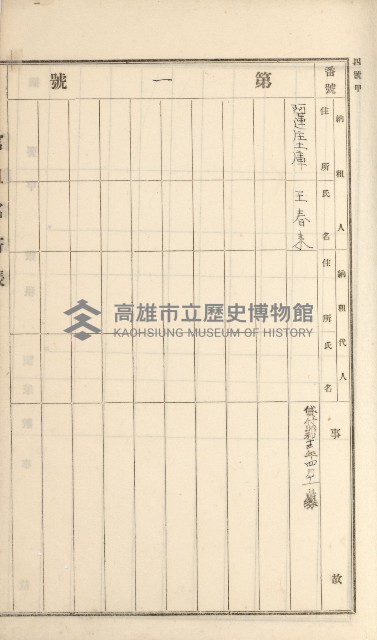 四號甲
番號
第一號
納租人
住所
氏名
納租代人
住所
氏名
事故
阿蓮庄土庫
王春来
高雄市立歷史博物館
KAOHSIUNG MUSEUM OF HISTORY